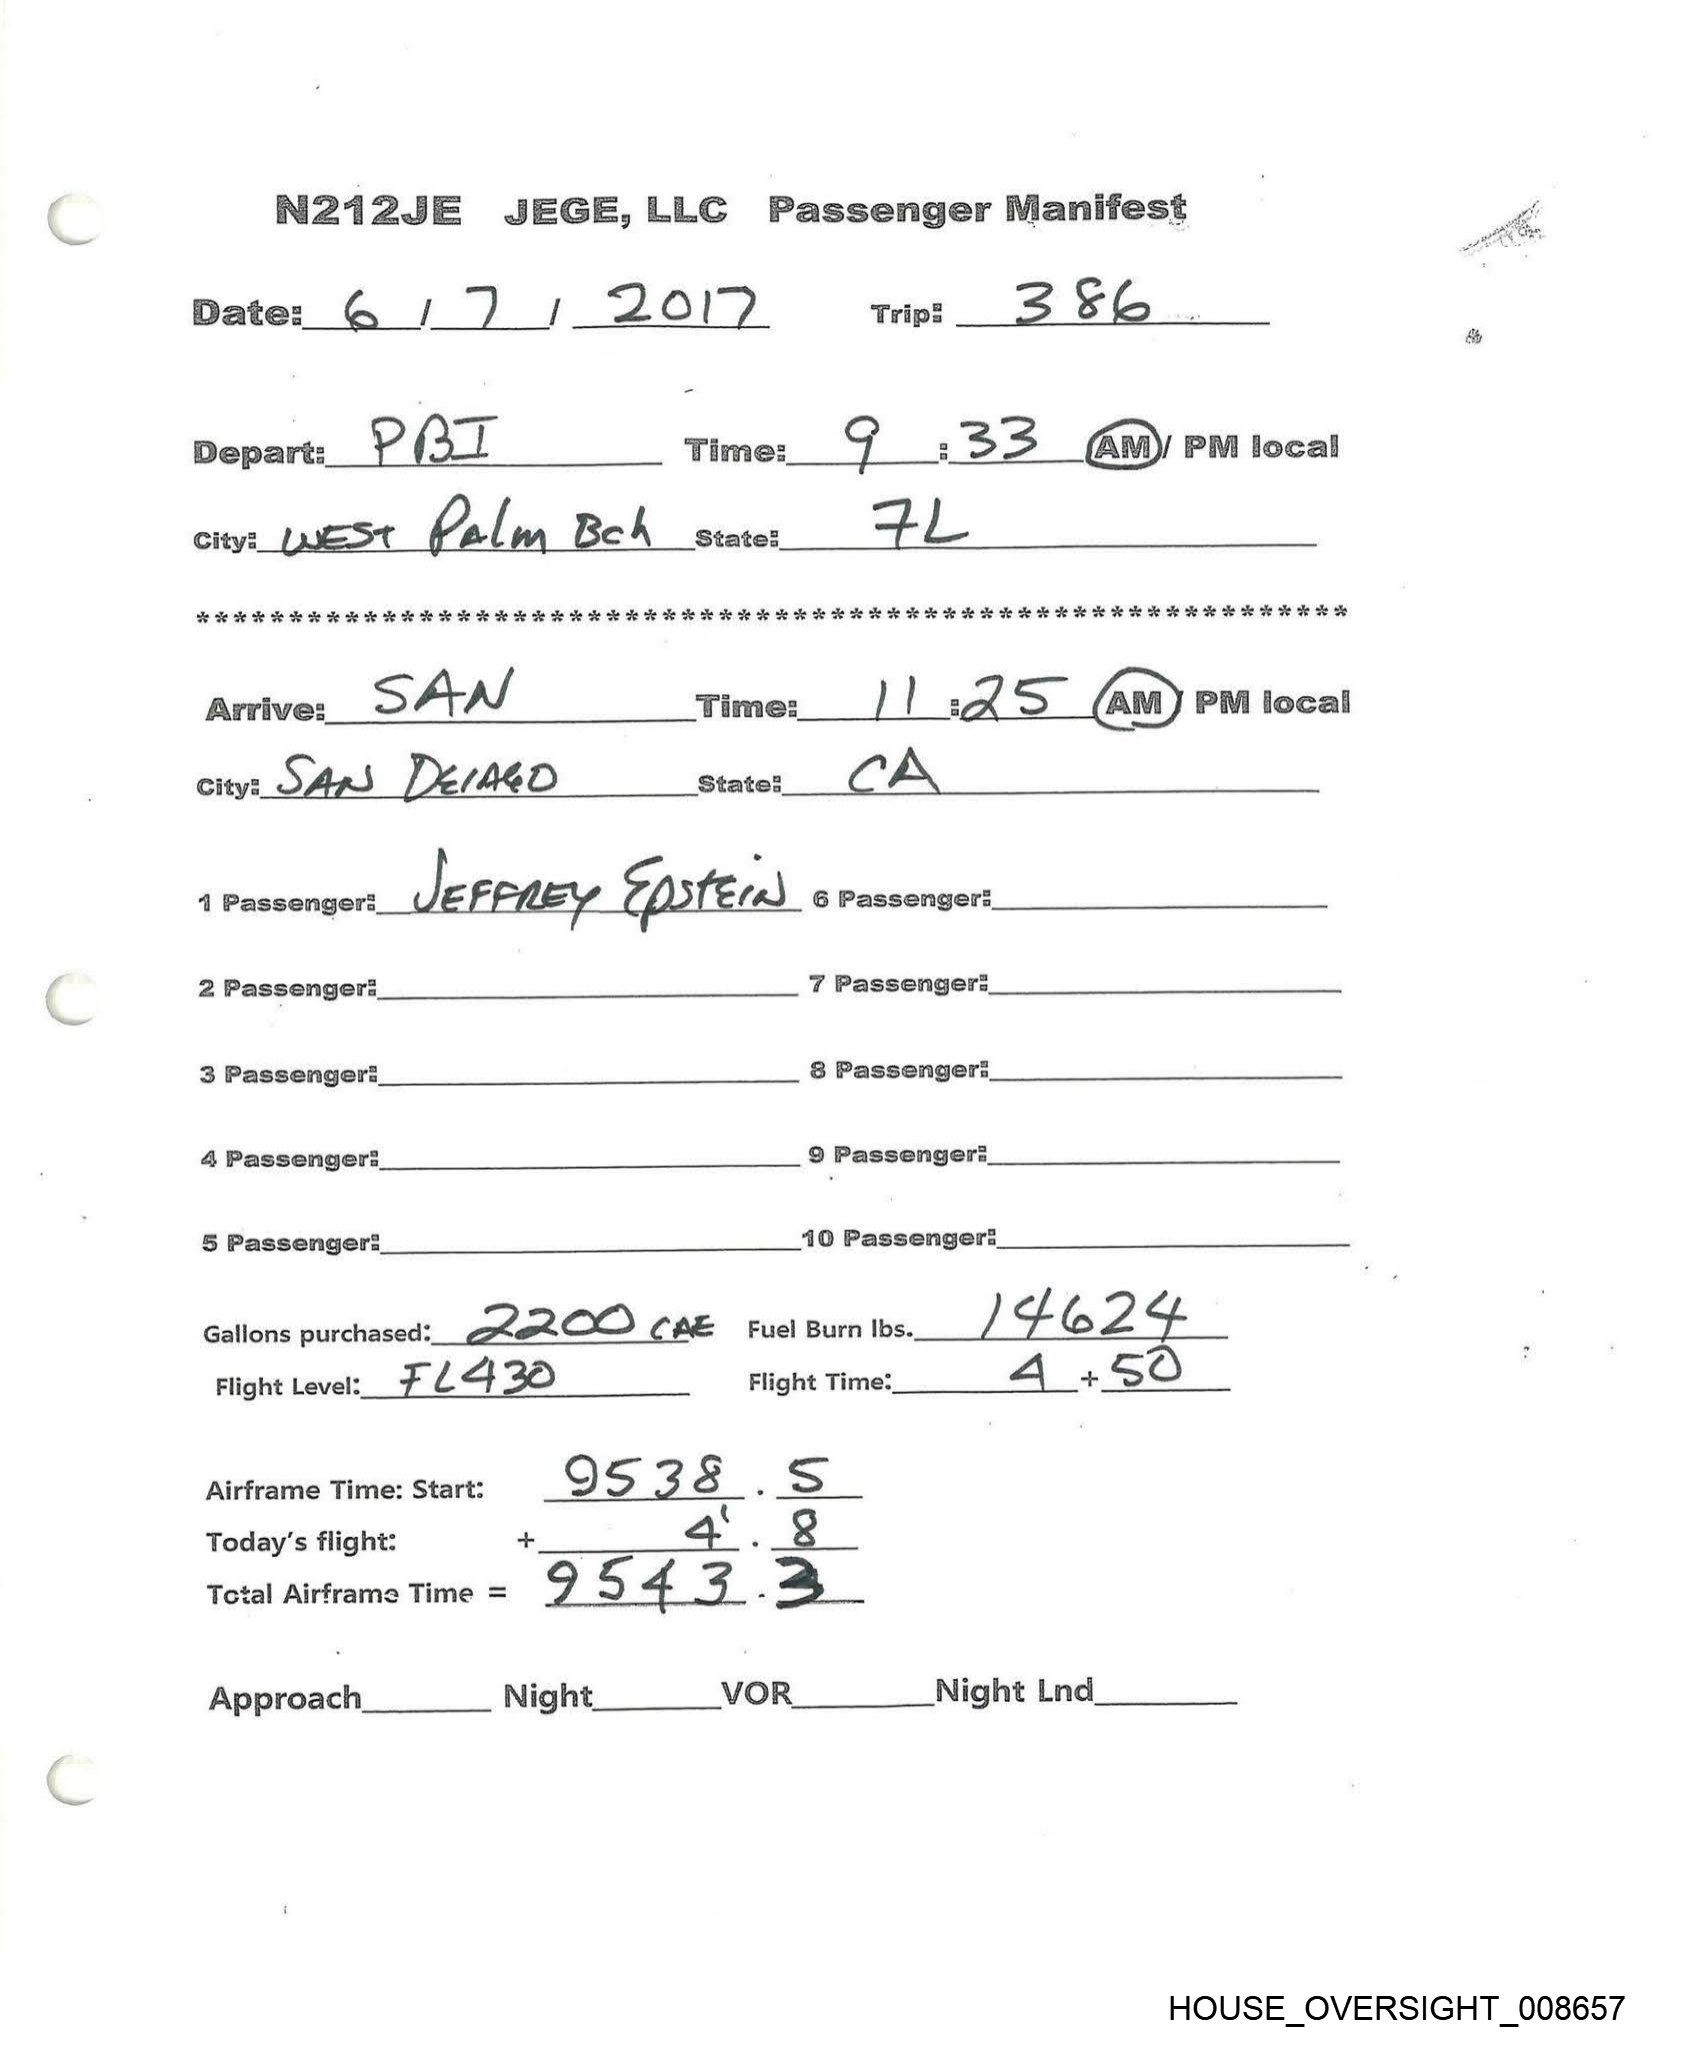 N212JE JEGE, LLC Passenger Manifest
Date: 6 / 7 / 2017 Trip: 386
Depart: PBI Time: 9 : 33 AM / PM local
City: WEST Palm Bch State: FL
************************************************************
Arrive: SAN Time: 11 : 25 AM / PM local
City: SAN DEIAGO State: CA
1 Passenger: JEFFREY EPSTEIN 6 Passenger:
2 Passenger: 7 Passenger:
3 Passenger: 8 Passenger:
4 Passenger: 9 Passenger:
5 Passenger: 10 Passenger:
Gallons purchased: 2200 CAE Fuel Burn lbs. 14624
Flight Level: FL430 Flight Time: 4 + 50
Airframe Time: Start: 9538 . 5
Today's flight: + 4 . 8
Total Airframe Time = 9543 . 3
Approach Night VOR Night Lnd
HOUSE_OVERSIGHT_008657